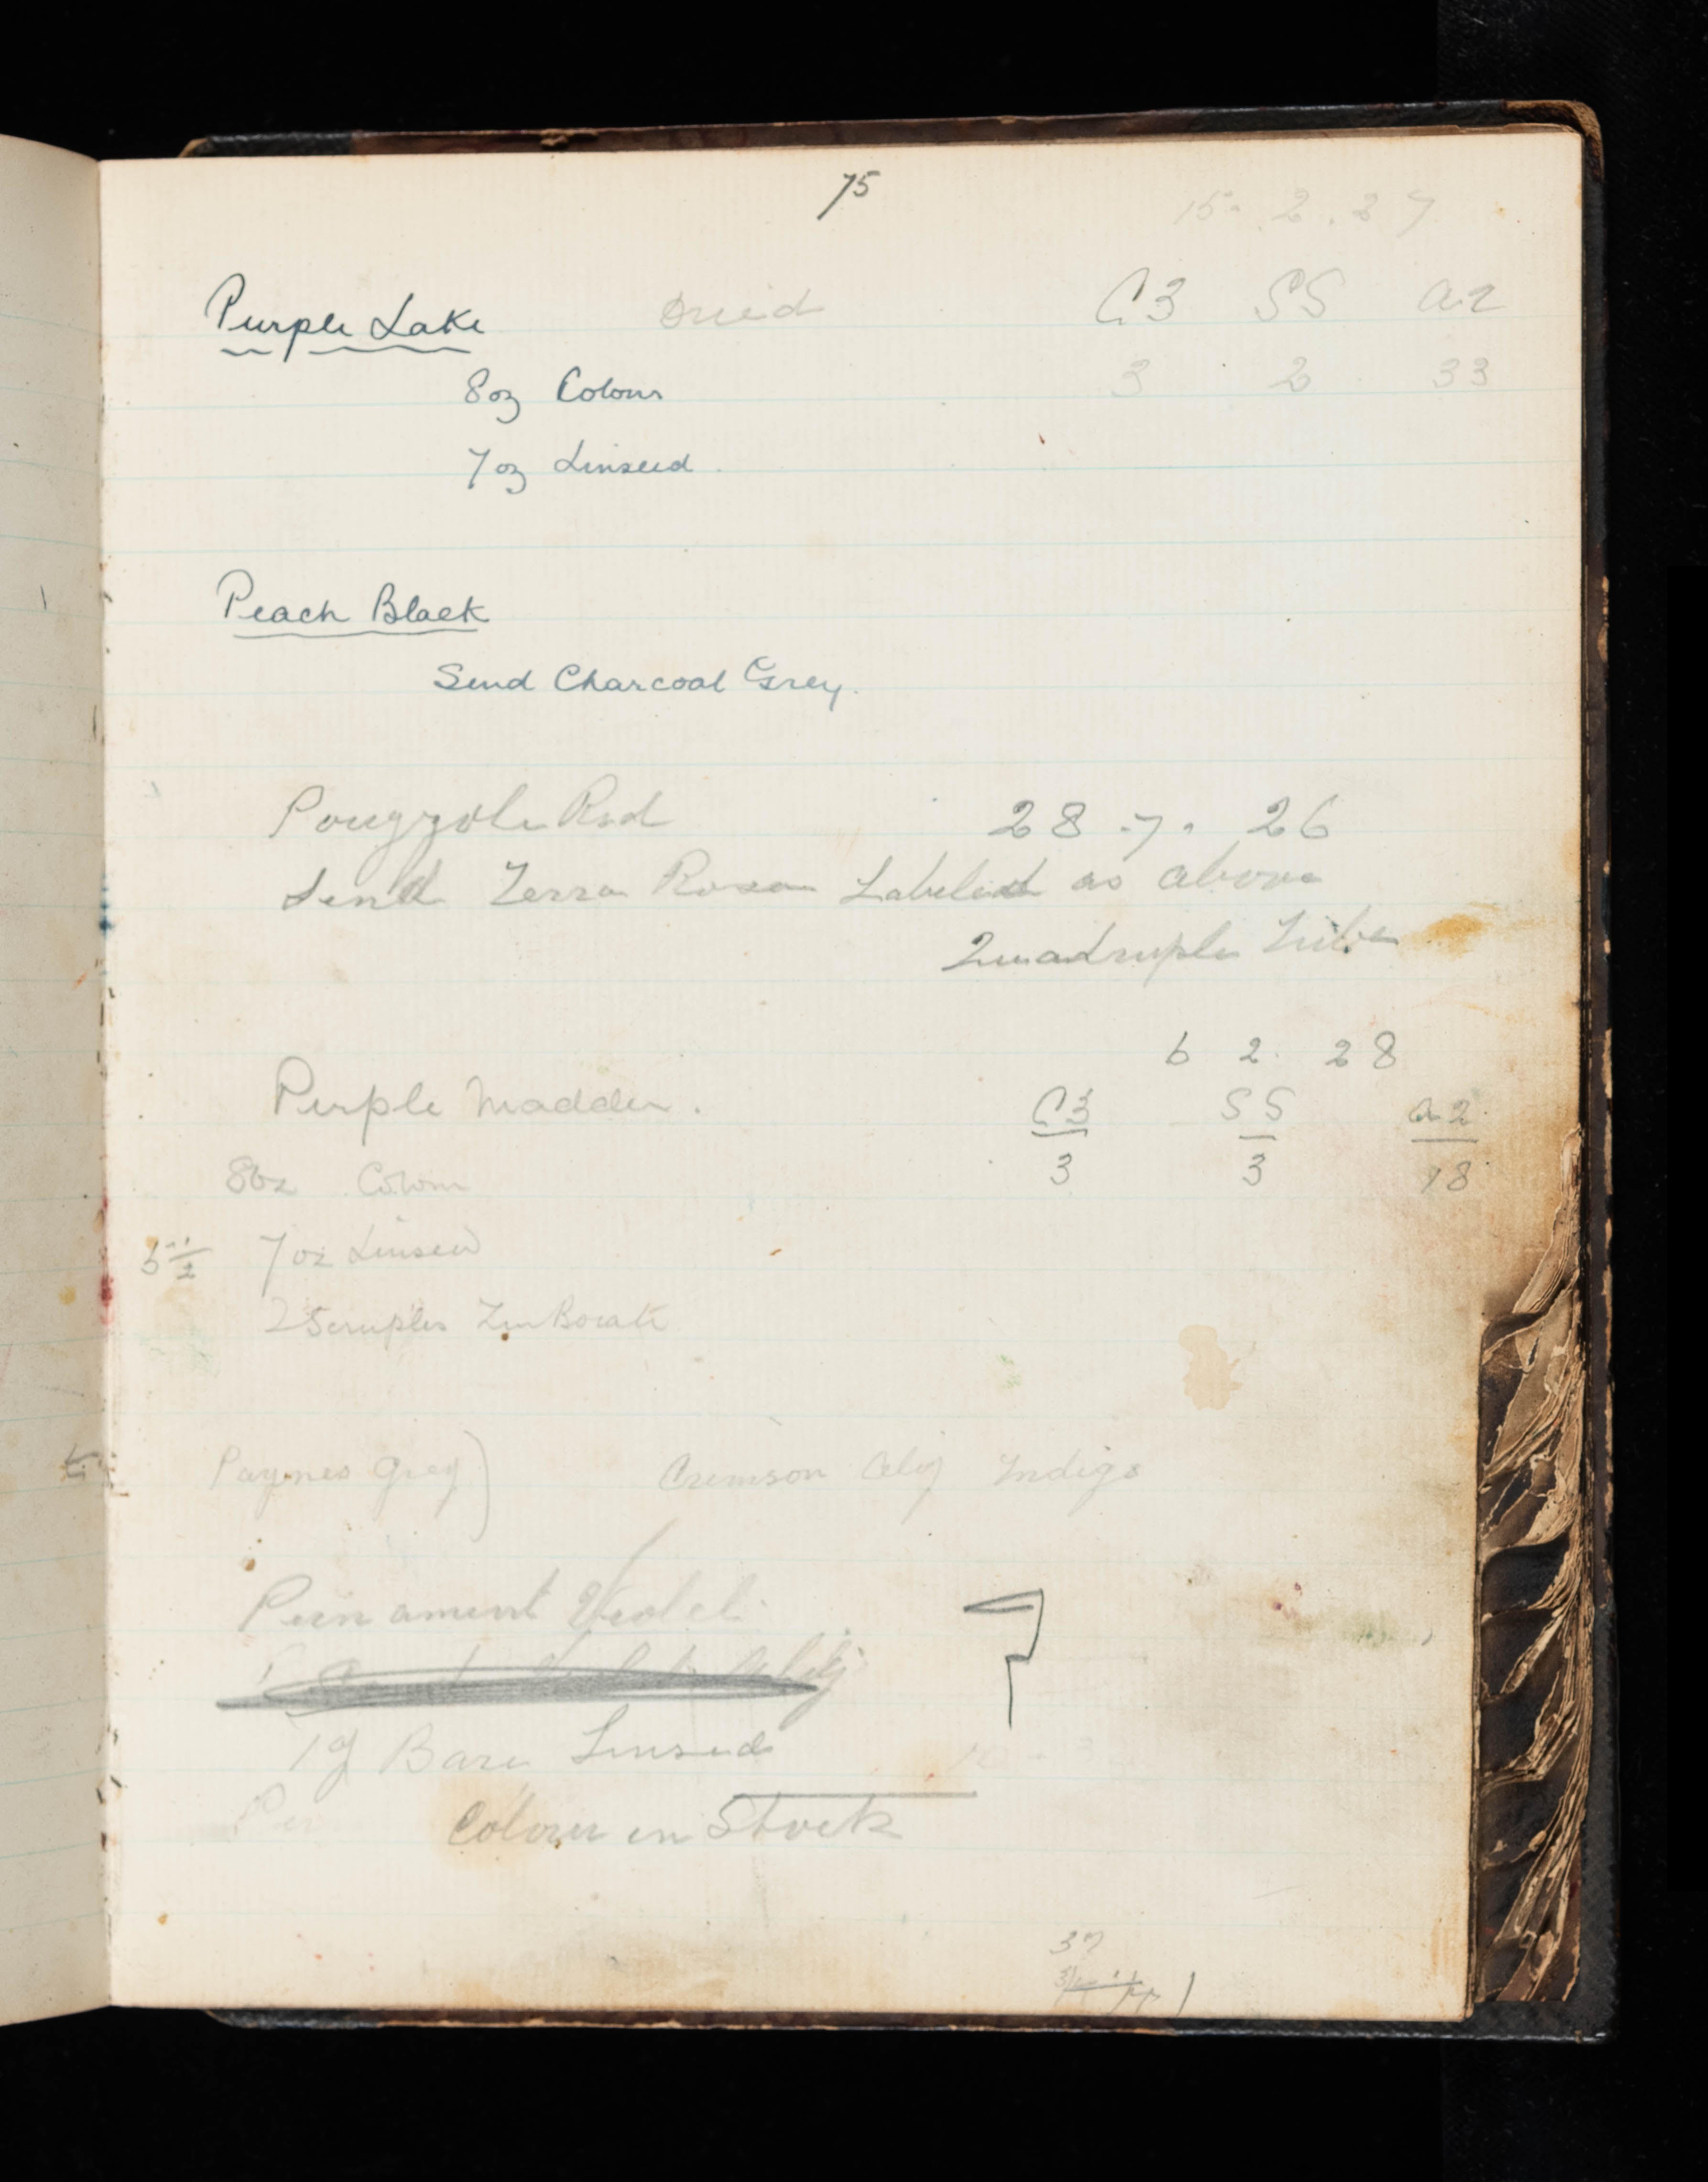 75
15. 2. 27
Purple Lake Dried C3 SS a2
8oz Colour 3 2 33
7oz Linseed.
Peach Black
Send Charcoal Grey.
Pougzole Red 28.7.26
Send Terra Rosa Labeled as above
Quadruple Tube
6 2. 28
Purple Madder. C3 SS a2
8oz Colour 3 3 18
6 1/2 7oz Linseed
2 Scruples Zin Borate
Paynes Grey) Crimson Aliz Indigo
Permament Violet
Bare Linseed
Colour in Stock
37